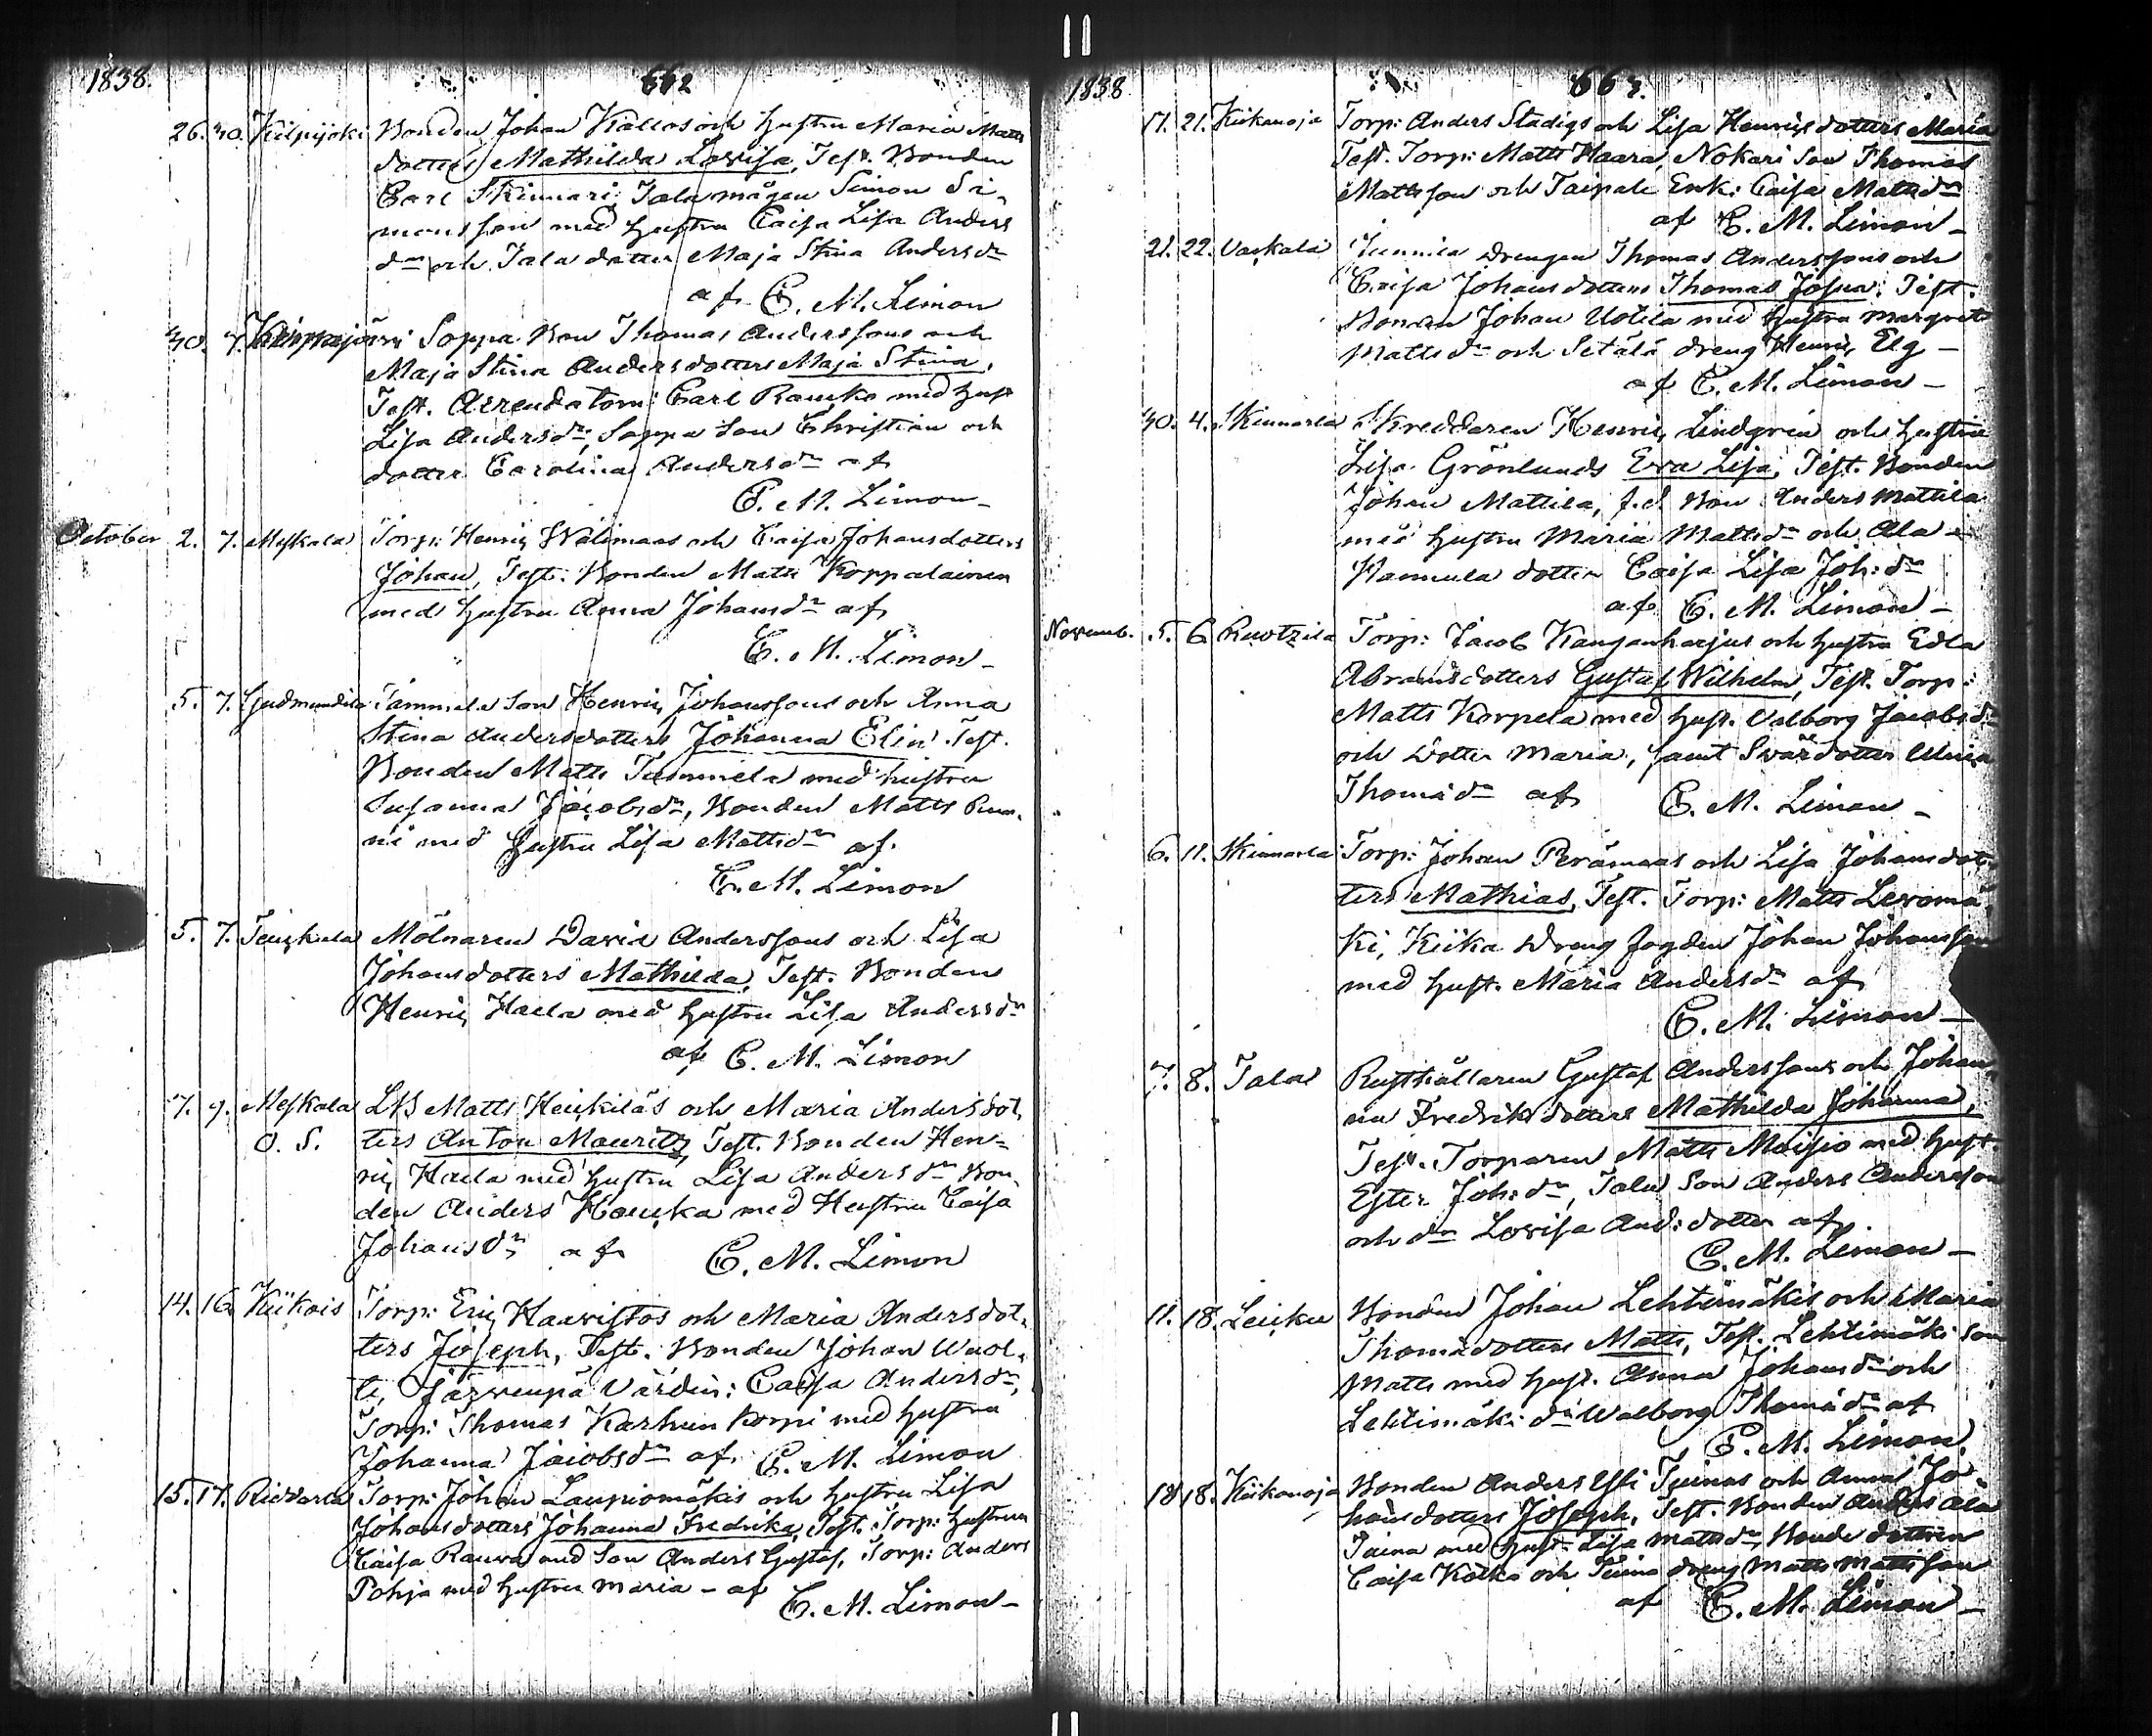 1838. 662
26. 30. Kilpijoki Bonden Johan Kallos och hustru Maria Matts
dotters Mathilda Lovisa, Test. Bonden
Carl Skinnari, Tala mågen Simon Si-
monsson med hustru Caisa Lisa Anders
dr och Tala dotter Maja Stina Andersdr
af C. M. Limon
30. 7. Soppa Son Thomas Anderssons och
Maja Stina Andersdotters Maja Stina,
Test. Arrendatorn Carl Rauska med hust
Lisa Andersdr, Soppa Son Christian och
dotter Carolina Andersdr af
C. M. Limon -
October 2. 7. Meskala Torp: Henric Wälimaas och Caisa Johansdotters
Johan, Test. Bonden Matts Koppalainen
med hustru Anna Johansdr af
C. M. Limon -
5. 7. Gudmundila Tammela Son Henric Johanssons och Anna
Stina Andersdotters Johanna Elin Test.
Bonden Matts Tammela med hustru
Susanna Jacobsdr, Bonden Matts Run-
ni med hustru Lisa Mattsdr af
C. M. Limon
5. 7. Mölnaren David Anderssons och Lisa
Johansdotters Mathilda, Test. Bonden
Henric Haela med hustru Lisa Andersdr
af C. M. Limon
7. 9. Meskala LB Matts Heikiläs och Maria Andersdot-
O. S. ters Anton Mauritz, Test. Bonden Hen-
ric Haela med hustru Lisa Andersdr Bon-
den Anders Hauska med Hustru Caisa
Johansdr af C. M. Limon
14. 16. Kiikois Torp: Eric Haavistos och Maria Andersdot-
ters Joseph, Test. Bonden Johan Wuol-
le, Järvenpä Värdin: Caisa Andersdr,
Torp: Thomas Karhun korpi med hustru
Johanna Jacobsdr af C. M. Limon
15. 17. Riddarla Torp: Johan Laupiomäkis och hustru Lisa
Johansdotters Johanna Fredrika, Test. Torp: hustrun
Caisa Rauva med Son Anders Gustaf, Torp: Anders
Pohja med hustru Maria - af C. M. Limon -
1838 663.
17. 21. Kiikanoja Torp: Anders Stadigs och Lisa Henricsdotters Maria
Test. Torp: Matts Haara, Nokari Son Thomas
Mattsson och Taipale Enk: Caisa Mattsdr
af C. M. Limon -
21. 22. Vaskala Junnila drengen Thomas Anderssons och
Caisa Johansdotters Thomas Josua. Test.
Bonden Johan Uotila med hustru Margret
Mattsdr och Setälä dreng Henric Elg -
af C. M. Limon -
30. 4. Skinnarla Skreddaren Henric Lindgrén och hustru
Lisa Grönlunds Eva Lisa, Test. Bonden
Johan Mattila, f.d. Bon Anders Mattila
med hustru Maria Mattsdr och Ala -
Hannula dotter Caisa Lisa Joh:dr
af C. M. Limon -
Novemb. 5. 6 Ruotzila Torp: Jacob Kanganharjus och hustru Edla
Abramsdotters Gustaf Wilhelm, Test. Torp:
Matts Korpela med hust. Valborg Jacobsdr
och dotter Maria, samt Svärdotter Maria
Thomädr af C. M. Limon -
6. 11. Skinnarla Torp: Johan Perämaas och Lisa Johansdot-
ters Mathias, Test. Torp: Matts Levomä-
ki, Kiika Dreng fogden Johan Johansson
med hust. Maria Andersdr af
C. M. Limon -
7. 8. Tala Rusthållaren Gustaf Anderssons och Johan-
na Fredriksdotters Mathilda Johanna,
Test. Torparen Matts Moisio med hust.
Ester Joh:dr, Tala Son Anders Andersson
och dr Lovisa And:dotter af
C. M. Limon -
11. 18. Leiku Bonden Johan Lehtimäkis och Maria
Thomädotters Matts, Test. Lehtimäki Son
Matts med hust. Anna Johansdr och
Lehtimäki dr Walborg Thomädr af
C. M. Limon.
18 18. Kiikanoja Bonden Anders Yli Tuinas och Anna Jo-
hansdotters Joseph, Test. Bonden Anders Ala
Tuina med hust Lisa Mattsdr, Bonde dottren
Caisa Kotka och Tuina dreng Matts Mattsson
af C. M. Limon -